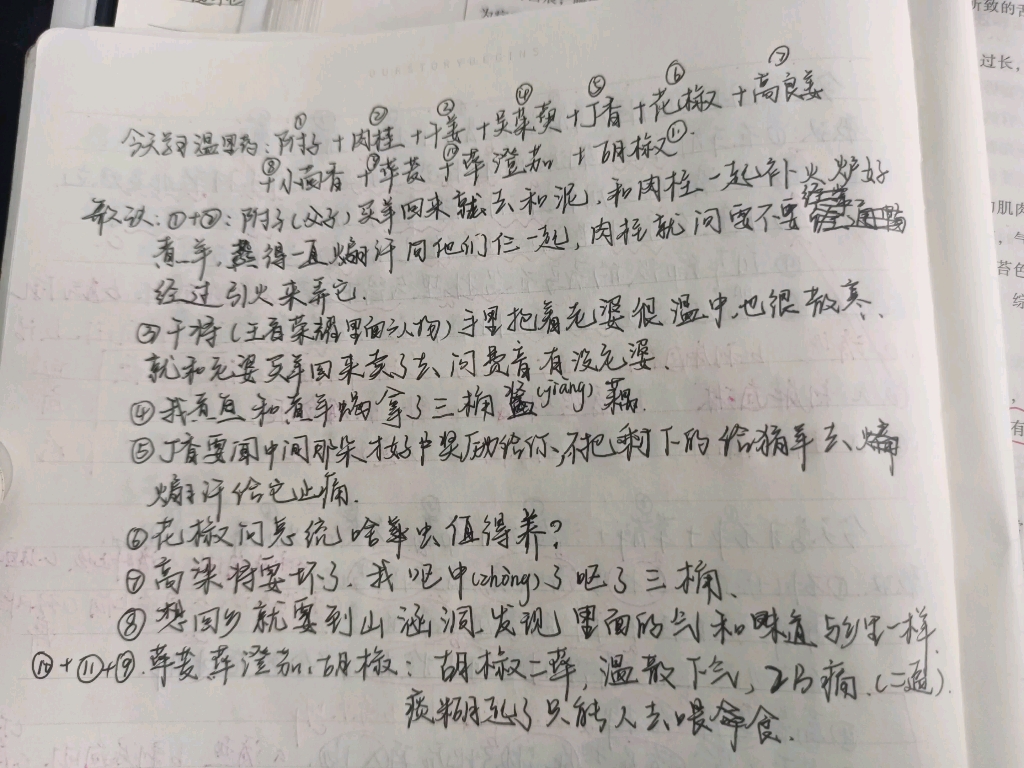 为
所致的舌
过长，
力肌肉
，气
苔色
综
有
① ② ② ④ ⑤ ⑥ ⑦
今天学习温里药：附子+肉桂+干姜+吴茱萸+丁香+花椒+高良姜
⑧+小茴香+⑨荜茇+⑩荜澄茄+胡椒⑪.
①+②：附子(父子)买羊回来就去和泥，和肉桂一起补火炉好
煮羊，蒸得一直煽汗问他们仨一起，肉桂就问要不要
经过引火来弄它.
③干将(王者荣耀里面人物)手里把着老婆很温中，也很散寒、
就和老婆买羊回来卖了去问费音有没老婆.
④我煮鱼和煮羊蝎拿了三桶酱(jiang)藕.
⑤丁香要闻中间那朵才好中奖励给你、不把剩下的给猪羊去煽
煽汗给它止痛.
⑥花椒问总统啥羊虫值得养？
⑦高粱将要坏了、我呕中(zhòng)了呕了三桶、
⑧想回乡就要到山涵洞.发现里面的气和味道与乡里一样.
⑩+⑪+⑨.荜茇荜澄茄.胡椒：胡椒二荜，温散下气，止痛.(二通).
痰糊迷了只能人去喂食.